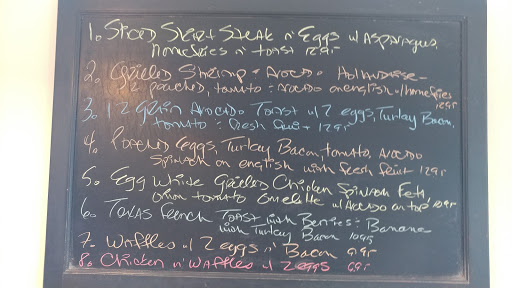 1. Sliced Skirt Steak n' Eggs w/ Asparagus,
Homefries n' toast 12.95
2. Grilled Shrimp + Avocado Hollandaise -
2 poached, tomato : avocado on english w/ homefries
12.95
3. 12 grain Avocado Toast w/ 2 eggs, Turkey Bacon,
tomato : fresh fruit 12.95
4. Poached eggs, Turkey Bacon, tomato, avocado
Spinach on english with fresh fruit 12.95
5. Egg White Grilled Chicken Spinach Feta,
onion tomato omelette w/ Avocado on top 10.95
6. Texas French Toast with Berries : Banana
with Turkey Bacon 10.95
7. Waffles w/ 2 eggs n' Bacon 9.95
8. Chicken n' Waffles w/ 2 eggs